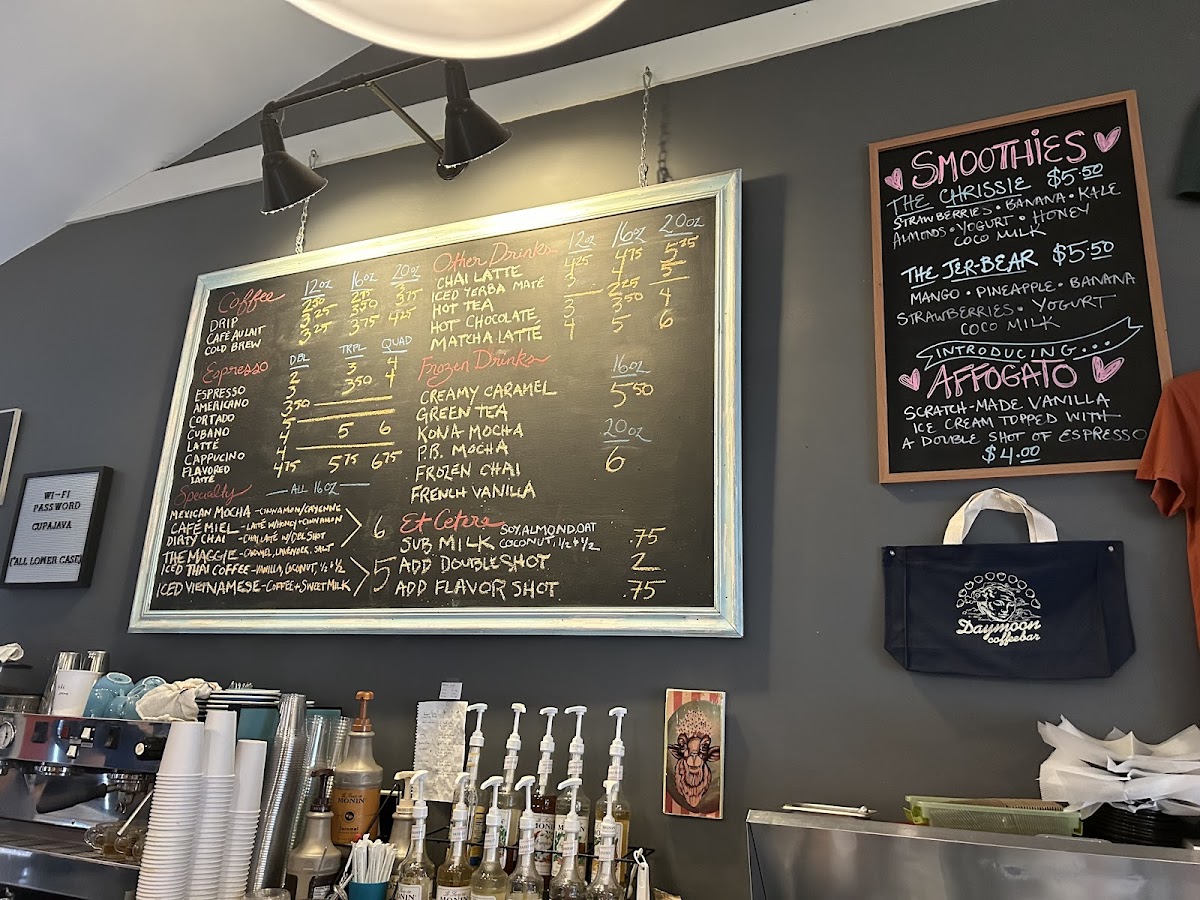 Coffee 12oz 16oz 20oz
DRIP 2.50 2.75 3
CAFÉ AU LAIT 3.25 3.50 3.75
COLD BREW 3.25 3.75 4.25
Espresso DBL TRPL QUAD
ESPRESSO 2 3 4
AMERICANO 3 3.50 4
CORTADO 3.50
CUBANO 5
LATTÉ 4 5 6
CAPPUCINO 4
FLAVORED LATTE 4.75 5.75 6.75
Specialty — ALL 16oz —
MEXICAN MOCHA - CINNAMON/CAYENNE
CAFÉ MIEL - LATTE W/HONEY + CINNAMON 6
DIRTY CHAI - CHAI LATE W/DBL SHOT
THE MAGGIE - CARAMEL, LAVENDER, SALT
ICED THAI COFFEE - VANILLA, COCONUT, ½ + ½ 5
ICED VIETNAMESE - COFFEE + SWEET MILK
Other Drinks 12oz 16oz 20oz
CHAI LATTE 4.25 4.75 5.25
ICED YERBA MATÉ 3 4 5
HOT TEA — 2.25 —
HOT CHOCOLATE 3 3.50 4
MATCHA LATTE 4 5 6
Frozen Drinks 16oz
CREAMY CARAMEL 5.50
GREEN TEA
KONA MOCHA 20oz
P.B. MOCHA 6
FROZEN CHAI
FRENCH VANILLA
Et Cetera
SUB MILK SOY, ALMOND, OAT COCONUT, ½ + ½ .75
ADD DOUBLE SHOT 2
ADD FLAVOR SHOT .75
SMOOTHIES
THE CHRISSIE $5.50
STRAWBERRIES • BANANA • KALE
ALMONDS • YOGURT • HONEY
COCO MILK
THE JER-BEAR $5.50
MANGO • PINEAPPLE • BANANA
STRAWBERRIES • YOGURT
COCO MILK
INTRODUCING...
AFFOGATO
SCRATCH-MADE VANILLA
ICE CREAM TOPPED WITH
A DOUBLE SHOT OF ESPRESSO
$4.00
WI-FI
PASSWORD
CUPAJAVA
(ALL LOWER CASE)
Daymoon
coffeebar
MONIN
MONIN
MONIN